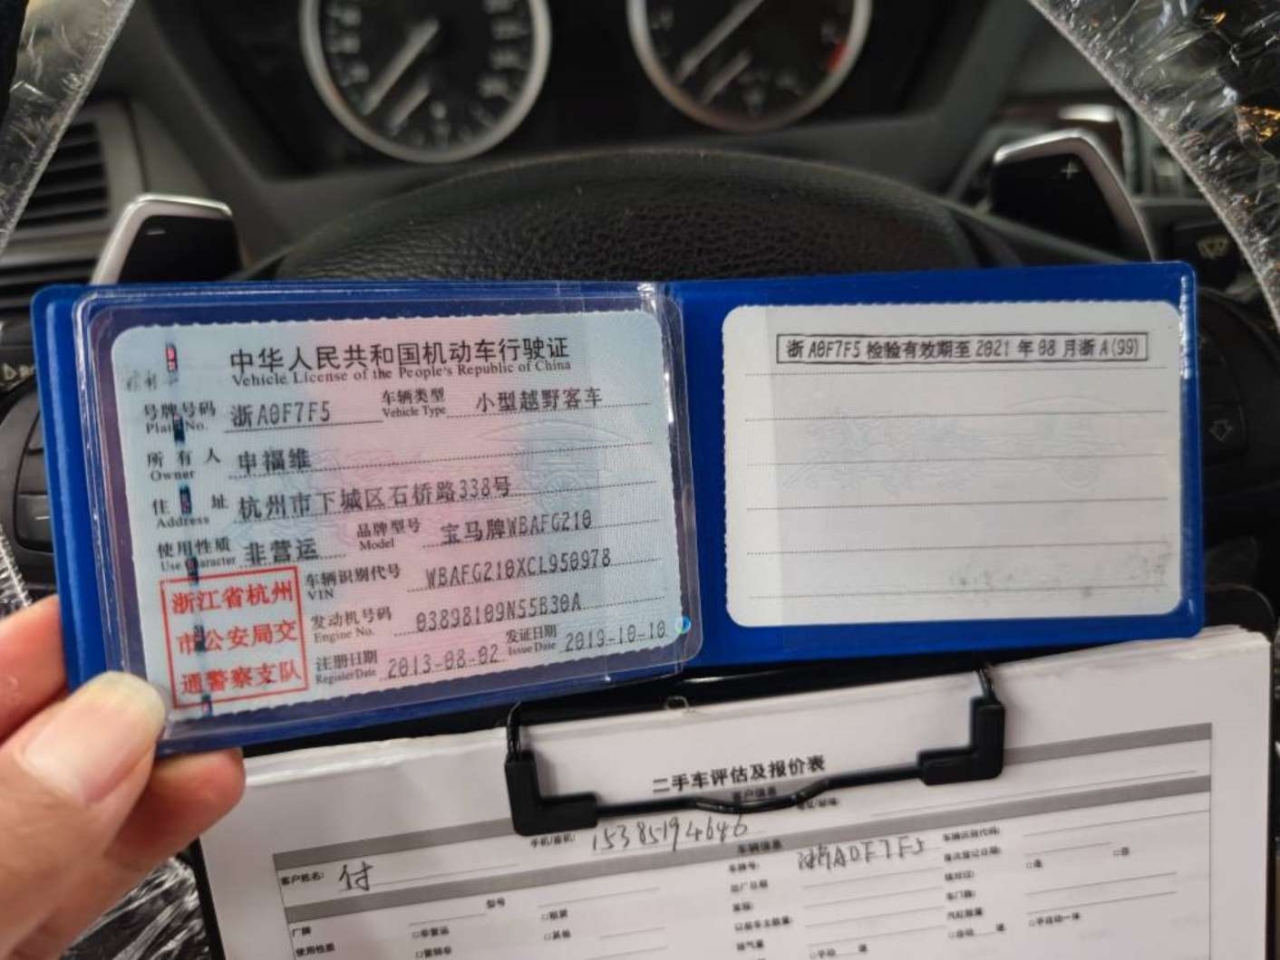 中华人民共和国机动车行驶证
Vehicle License of the People's Republic of China
号牌号码 浙A0F7F5 车辆类型 小型越野客车
Plate No. Vehicle Type
所有人 申福维
Owner
住址 杭州市下城区石桥路338号
Address
使用性质 非营运 品牌型号 宝马牌WBAFG210
Use Character Model
车辆识别代号 WBAFG210XCL950978
VIN
发动机号码 03898109N55B30A
Engine No.
注册日期 2013-08-02 发证日期 2019-10-10
Register Date Issue Date
浙江省杭州
市公安局交
通警察支队
浙A0F7F5 检验有效期至 2021年08月浙A(99)
二手车评估及报价表
客户信息
客户姓名: 付 手机/座机: 15385194646
车辆信息
车牌号: 浙A0F7F5 车辆识别代号:
出厂日期
厂牌 型号
使用性质 □非营运 □租赁
□营转非 □其他
排气量